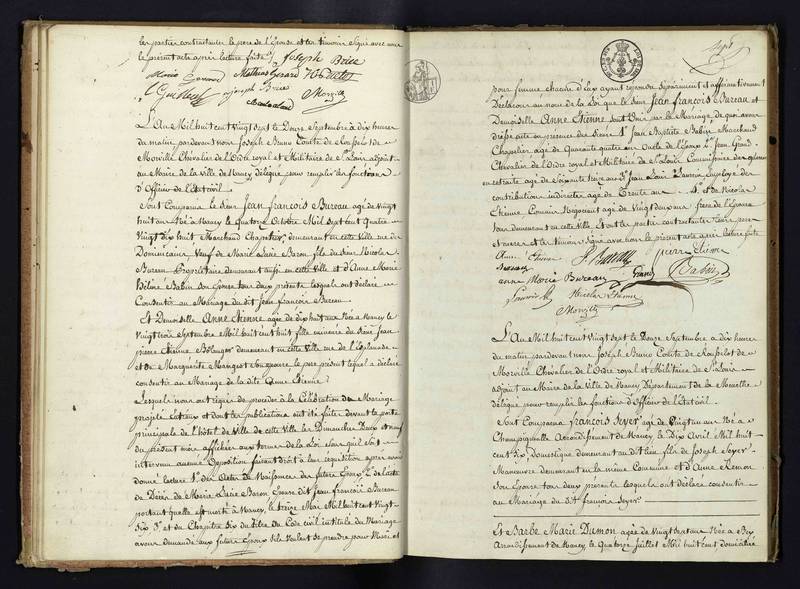 les parties contractantes le père de l'Epouse et les témoins signé avec nous
le présent acte après lecture faite. Joseph Brice
Marie Gerard Mathias Gerard
Joseph Brice
Morville
L'An Mil huit cent Vingt sept le Douze Septembre à dix heures
du matin pardevant nous Joseph Bruno Comte de Rosselot de
Morville Chevalier de l'Ordre royal et Militaire de St Louis, adjoint
au Maire de la Ville de Nancy délégué pour remplir les fonctions
d'Officier de l'Etat civil.
Sont Comparus le Sieur Jean françois Bureau agé de Vingt
huit ans Né à Nancy le quatorze Octobre Mil sept cent Quatre
Vingt dix huit Marchand Chapelier, demeurant en cette Ville rue des
Dominicains, Veuf de Marie Lucie Baron, fils du Sieur Nicolas
Bureau Propriétaire demeurant aussi en cette Ville et d'Anne Marie
Hélène Babin son Epouse tous deux présents lesquels ont déclaré
Consentir au Mariage du dit Jean François Bureau.
Et Demoiselle Anne Etienne agée de Dix huit ans Née à Nancy le
Vingt trois Septembre Mil huit cent huit fille mineure du Sieur Jean
pierre Etienne Boulanger demeurant en cette Ville rue de l'Esplanade
et de Marguerite Mangeot son épouse, le père présent lequel a déclaré
consentir au Mariage de la dite Anne Etienne.
Lesquels nous ont requis de procéder à la Célébration du Mariage
projeté Entreux et dont les publications ont été faites devant la porte
principale de l'hôtel de Ville de cette Ville les Dimanches Deux et neuf
du présent mois affichées aux termes de la Loi sans qu'il soit
intervenu aucune Opposition faisant droit à leur réquisition après avoir
donné lecture 1° des Actes de Naissances des futurs Epoux 2° de l'acte
de Décès de Marie Lucie Baron Epouse dudit Jean françois Bureau
portant quelle est morte à Nancy, le treize Mai Mil huit cent Vingt
Six 3° et du Chapitre Six du titre du Code civil intitulé du Mariage
avons demandé aux futurs Epoux s'ils Veulent se prendre pour Mari et
Sept
pour femme chacun d'Eux ayant répondu séparément et affirmativement
Déclarons au nom de la Loi que le Sieur Jean françois Bureau et
Demoiselle Anne Etienne sont Unis par le Mariage, de quoi avons
dressé acte en présence des Sieurs 1° Jean Baptiste Babin Marchand
Chapelier agé de Quarante quatre ans Oncle de l'Epoux 2° Jean Grand
Chevalier de l'Ordre royal et Militaire de St Louis, Commissaire des guerres
en retraite agé de Soixante treize ans 3° Jean Louis Employé des
contributions indirectes agé de Trente ans 4° et de Nicolas
Etienne Commis Négociant agé de Vingt deux ans frère de l'Epouse
tous demeurant en cette Ville, Et ont les parties contractantes leurs pères
et mères et les témoins signé avec nous le présent acte après lecture faite
Anne Etienne J. Bureau pierre Etienne
Bureau
anne Marie Bureau Grand Babin
Nicolas Etienne
Morville
L'An Mil huit cent Vingt sept le Douze Septembre à dix heures
du matin pardevant nous Joseph Bruno Comte de Rosselot de
Morville Chevalier de l'Ordre royal et Militaire de St Louis
adjoint au Maire de la Ville de Nancy Département de la Meurthe
délégué pour remplir les fonctions d'Officier de l'Etat civil.
Sont Comparus françois Soyer agé de Vingt un ans Né à
Champigneulle Arrondissement de Nancy, le Dix Avril Mil huit
cent Six, Domestique demeurant au dit lieu fils de Joseph Soyer
Manœuvre demeurant en la même Commune et d'Anne Remon
Son Epouse tous deux présents lesquels ont déclaré consentir
au Mariage du dit françois Soyer.
Et Barbe Marie Dumon agée de Vingt sept ans Née à Bey
Arrondissement de Nancy le Quatorze Juillet Mil huit cent domiciliée